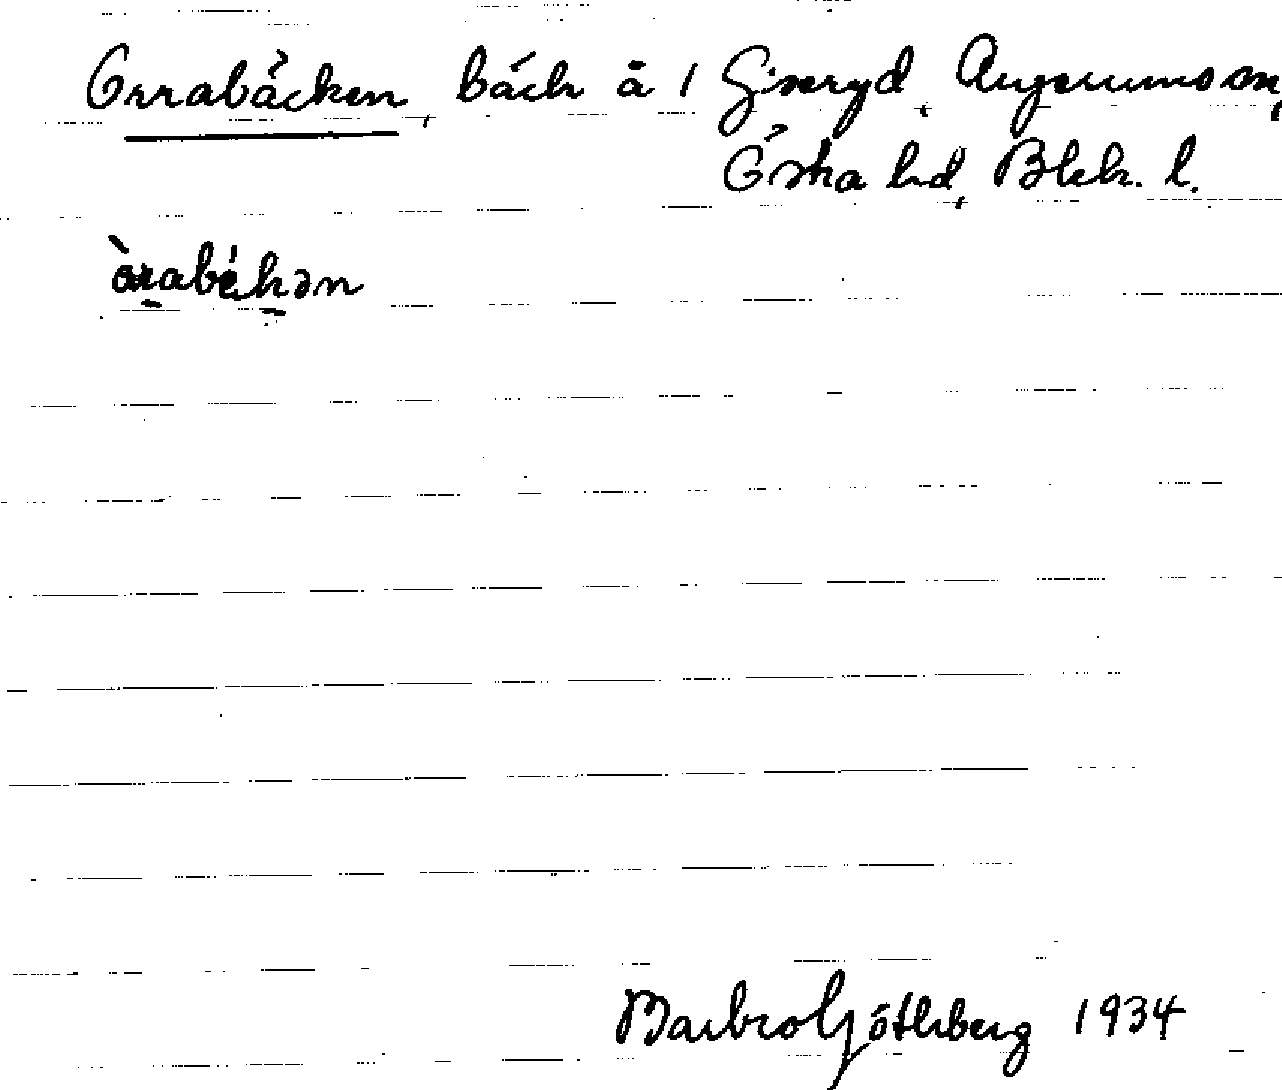 Orrabäcken, bäck å / Ginseryd, Augerums sn,
Östra hd, Blek. l.
òrabǽkən
Barbro Göthberg 1934